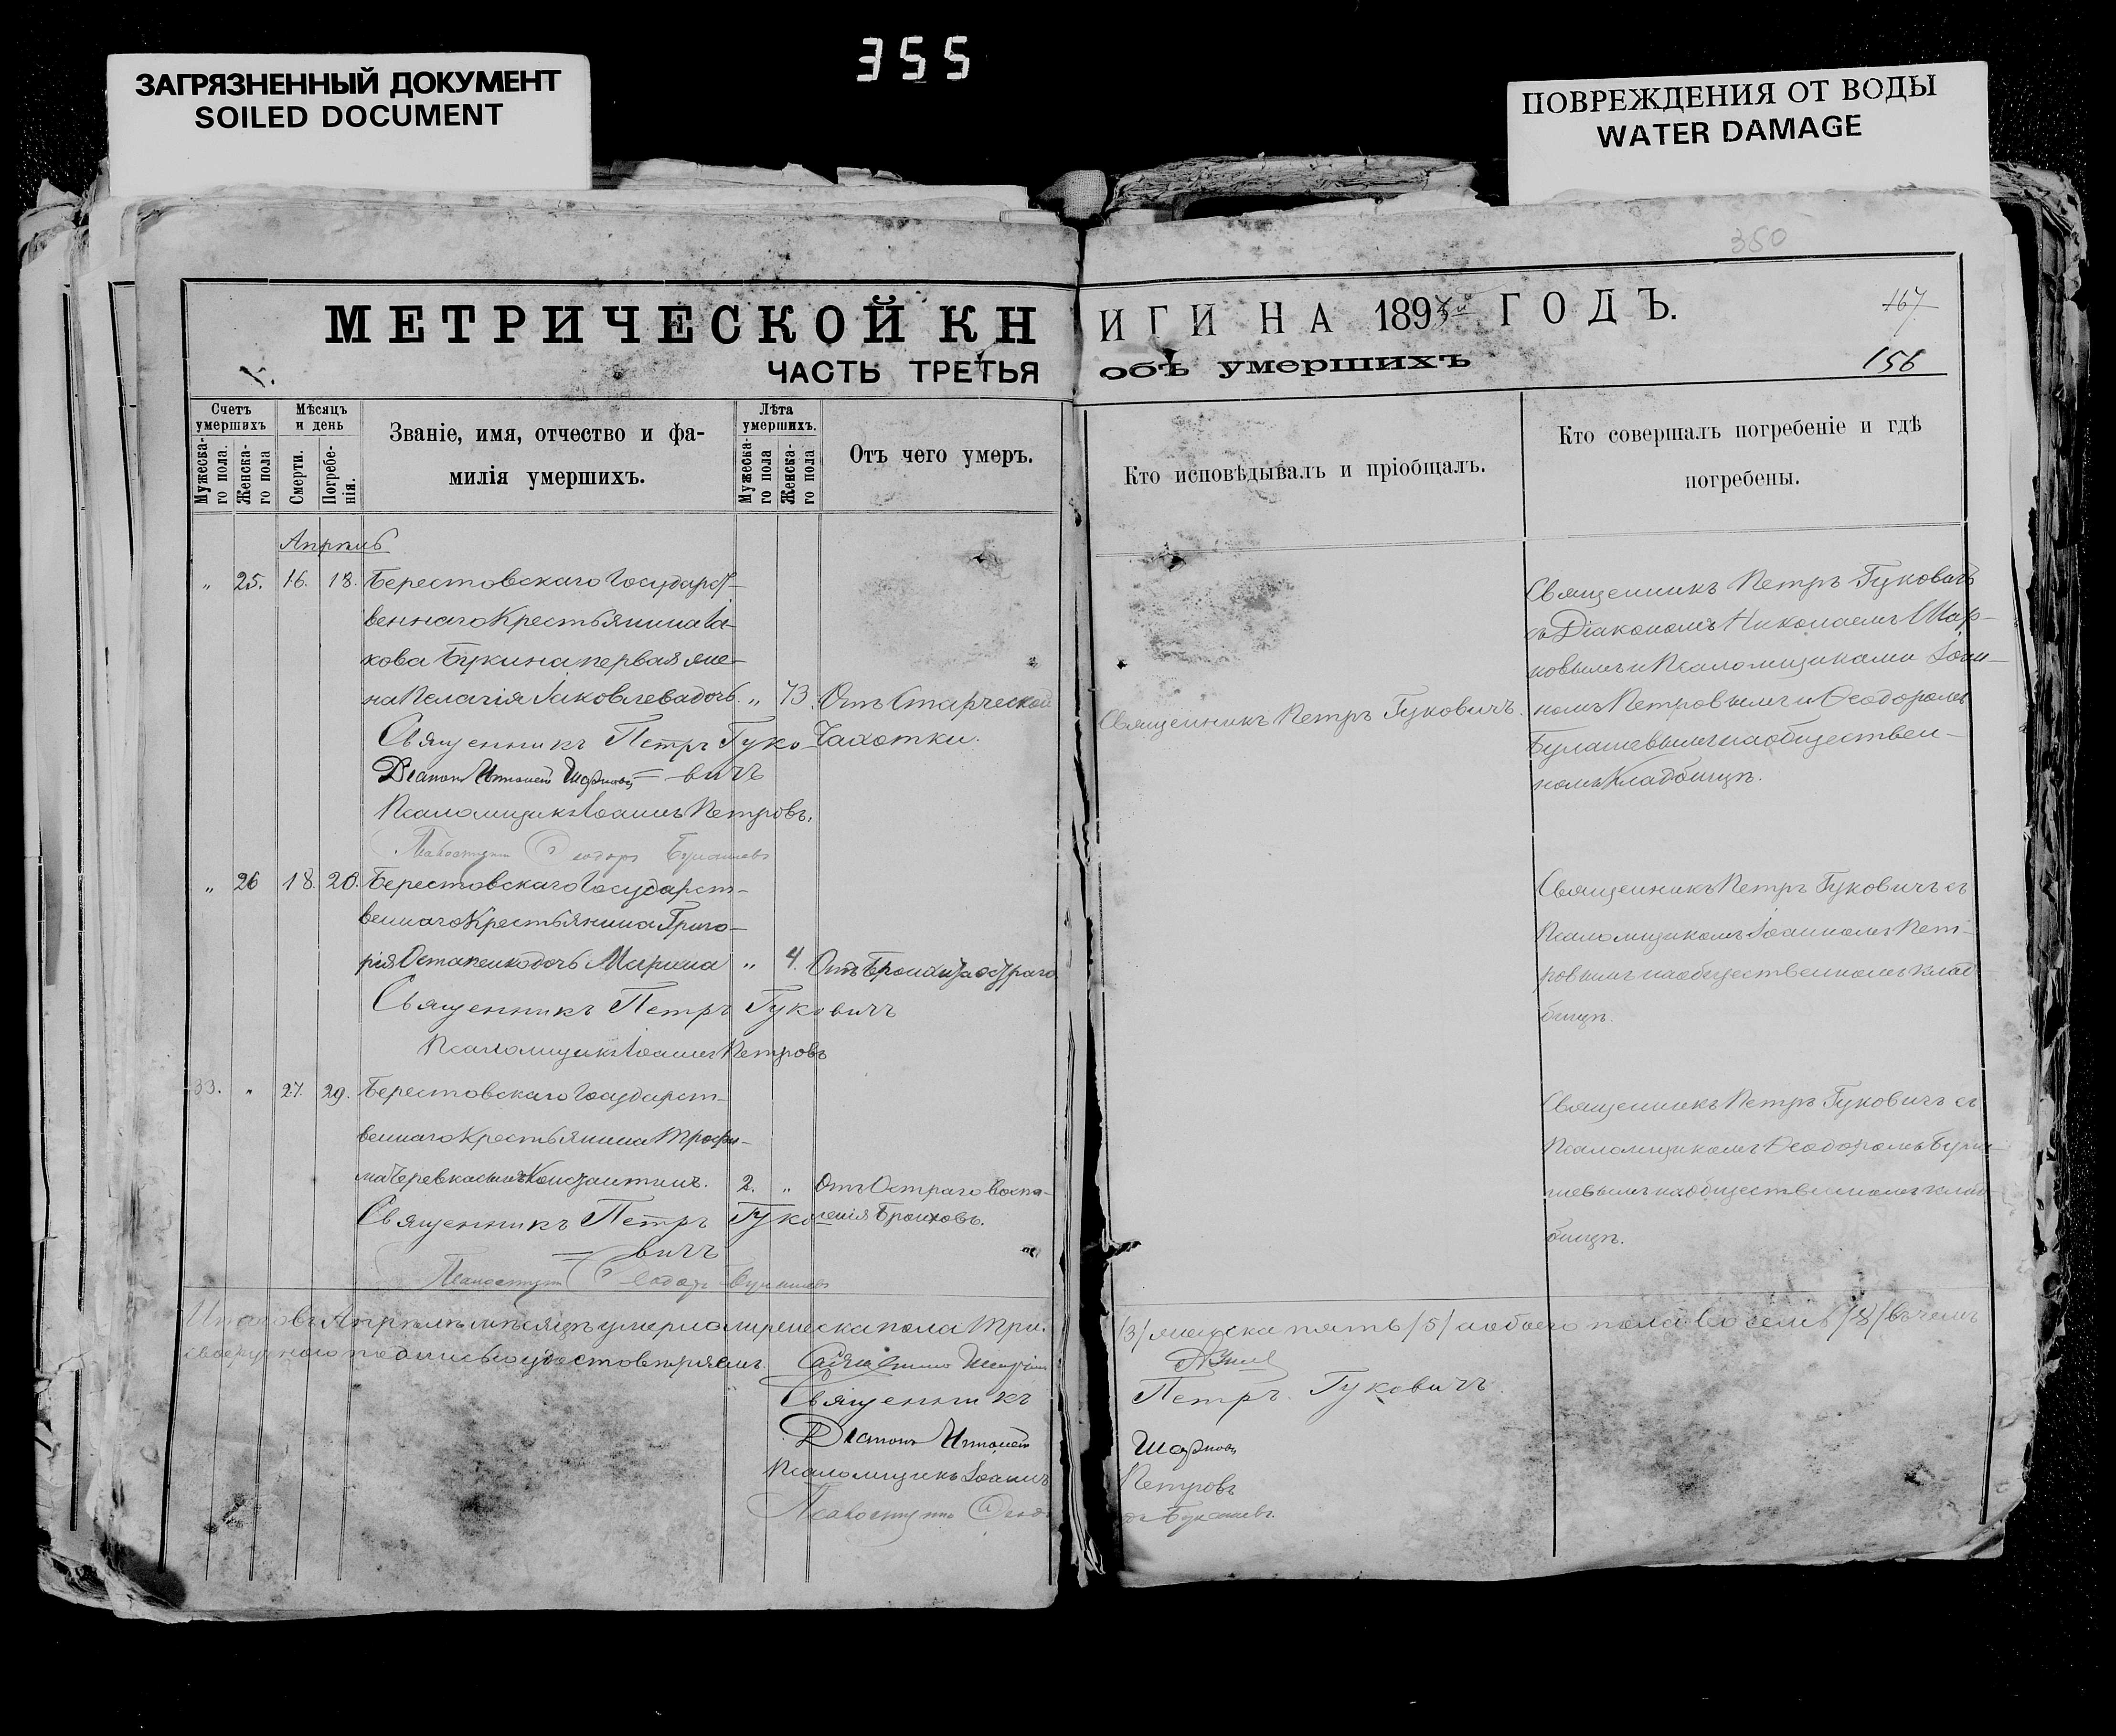 355
ЗАГРЯЗНЕННЫЙ ДОКУМЕНТ
SOILED DOCUMENT
ПОВРЕЖДЕНИЯ ОТ ВОДЫ
WATER DAMAGE
350
МЕТРИЧЕСКОЙ КН
ИГИ НА 189 ГОДЪ.
167
ЧАСТЬ ТРЕТЬЯ
объ умершихъ
156
Счетъ умершихъ
Мужеска-го пола.
Женска-го пола
Мѣсяцъ и день
Смерти.
Погребе-нія.
Званіе, имя, отчество и фа-
милія умершихъ.
Лѣта умершихъ.
Мужеска-го пола
Женска-го пола
Отъ чего умеръ.
Кто исповѣдывалъ и пріобщалъ.
Кто совершалъ погребеніе и гдѣ
погребены.
Апрѣль
„ 25. 16. 18. Берестовскаго Государст-
веннаго Крестьянина Іа-
кова Букина первая же-
на Пелагія Іаковлева дочь. „ 73. Отъ Старческой
Чахотки.
Священникъ Петръ Гуко-
вичъ
Діаконъ Николай Шарковъ
Псаломщикъ Іоаннъ Петровъ.
Псаломщикъ Ѳеодоръ Булашевъ
Священникъ Петръ Гуковичъ.
Священникъ Петръ Гуковичъ
съ Діакономъ Николаемъ Шар-
ковымъ и Псаломщиками Іоан-
номъ Петровымъ и Ѳеодоромъ
Булашевымъ на обществен-
номъ Кладбищѣ.
„ 26 18. 20. Берестовскаго Государст-
веннаго Крестьянина Григо-
рія Остапенко дочь Марина „ 4. Отъ Бронхита остраго
Священникъ Петръ Гуковичъ
Псаломщикъ Іоаннъ Петровъ
Священникъ Петръ Гуковичъ съ
Псаломщикомъ Іоанномъ Пет-
ровымъ на общественномъ клад-
бищѣ.
33. „ 27. 29. Берестовскаго Государст-
веннаго Крестьянина Трофи-
ма Черевка сынъ Константинъ. 2. „ Отъ Остраго Воспа-
ленія Бронховъ.
Священникъ Петръ Гуко-
вичъ
Псаломщикъ Ѳеодоръ Булашевъ
Священникъ Петръ Гуковичъ съ
Псаломщикомъ Ѳеодоромъ Була-
шевымъ на общественномъ клад-
бищѣ.
Итого въ Апрѣлѣ мѣсяцѣ умерло мужеска пола три.
/3/ женска пять /5/ обоего пола восемь /8/ въ чемъ
своеручною подписью удостовѣряемъ.
Священникъ
Петръ Гуковичъ
Діаконъ Николай
Шарковъ
Псаломщикъ Іоаннъ
Петровъ
Псаломщикъ Ѳеодо
ръ Булашевъ.